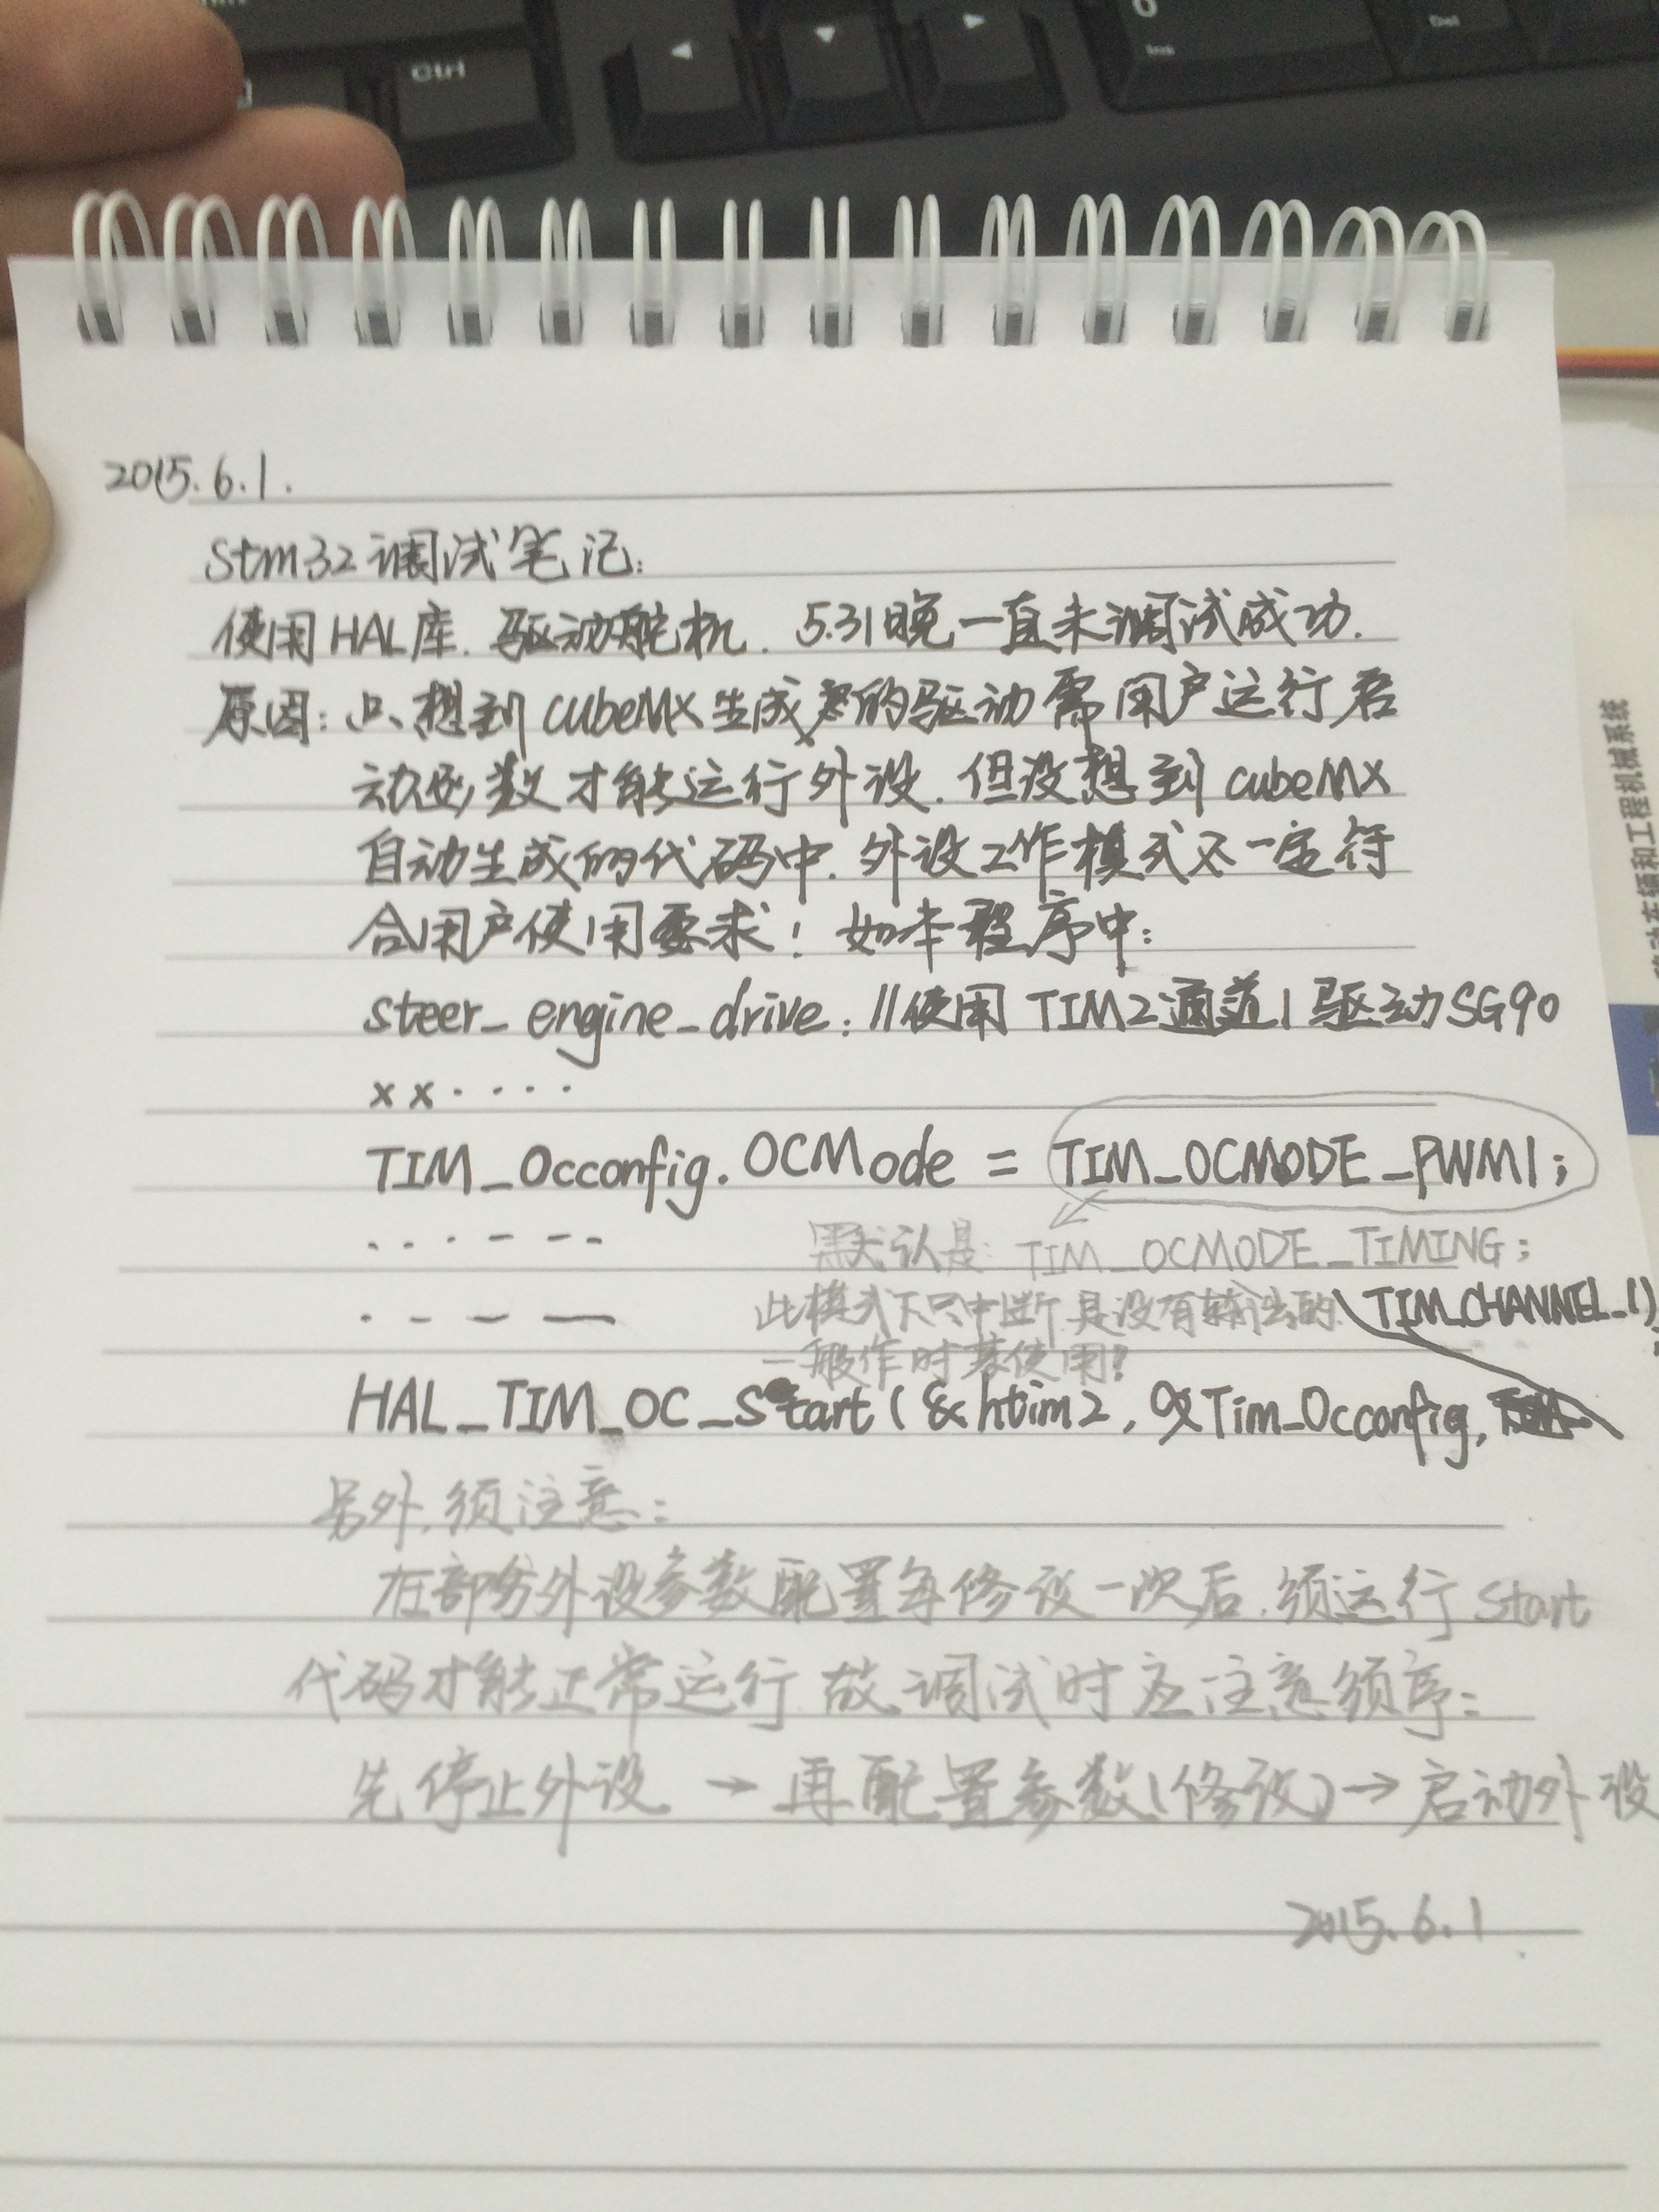 Ctrl
0
Ins
Del
2015.6.1.
Stm32调试笔记:
使用HAL库.驱动舵机. 5.31晚一直未调试成功.
原因:只想到cubeMX生成的驱动需用户运行启
动函数才能运行外设.但没想到cubeMX
自动生成的代码中.外设工作模式不一定符
合用户使用要求!如本程序中:
steer_engine_drive: //使用TIM2通道1驱动SG90
xx....
TIM_Occonfig.OCMode = TIM_OCMODE_PWM1;
默认是: TIM_OCMODE_TIMING;
此模式下只中断是没有输出的
一般作时基使用!
TIM_CHANNEL_1)
HAL_TIM_OC_Start(&htim2, &Tim_Occonfig,
另外,须注意:
在部分外设参数配置每修改一次后.须运行Start
代码才能正常运行.故调试时应注意须序:
先停止外设 → 再配置参数(修改) → 启动外设
2015.6.1
车辆和工程机械系统